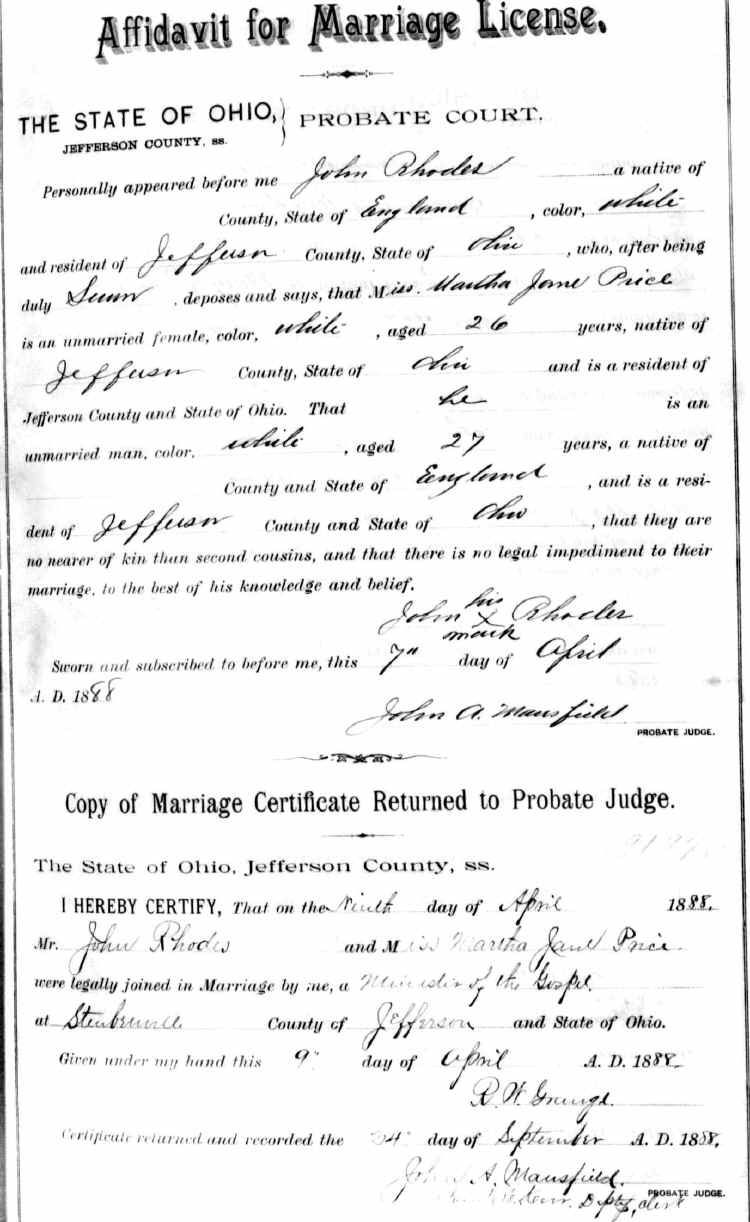 Affidavit for Marriage License.
THE STATE OF OHIO, } PROBATE COURT.
JEFFERSON COUNTY, ss.
Personally appeared before me John Rhodes a native of
County, State of England , color, white
and resident of Jefferson County, State of Ohio , who, after being
duly Sworn , deposes and says, that Miss. Martha Jane Price
is an unmarried female, color, white , aged 26 years, native of
Jefferson County, State of Ohio and is a resident of
Jefferson County and State of Ohio. That he is an
unmarried man, color, white , aged 27 years, a native of
County and State of England , and is a resi-
dent of Jefferson County and State of Ohio , that they are
no nearer of kin than second cousins, and that there is no legal impediment to their
marriage, to the best of his knowledge and belief.
his
John x Rhodes
mark
Sworn and subscribed to before me, this 7" day of April
A. D. 1888
John A. Mansfield
PROBATE JUDGE.
Copy of Marriage Certificate Returned to Probate Judge.
The State of Ohio, Jefferson County, ss.
I HEREBY CERTIFY, That on the Ninth day of April 1888.
Mr. John Rhodes and Miss Martha Jane Price.
were legally joined in Marriage by me, a Minister of the Gospel.
at Steubenville County of Jefferson and State of Ohio.
Given under my hand this 9" day of April A. D. 1888.
R. W.
Certificate returned and recorded the 24" day of September A. D. 1888.
John A. Mansfield.
PROBATE JUDGE.
Dpty, clerk